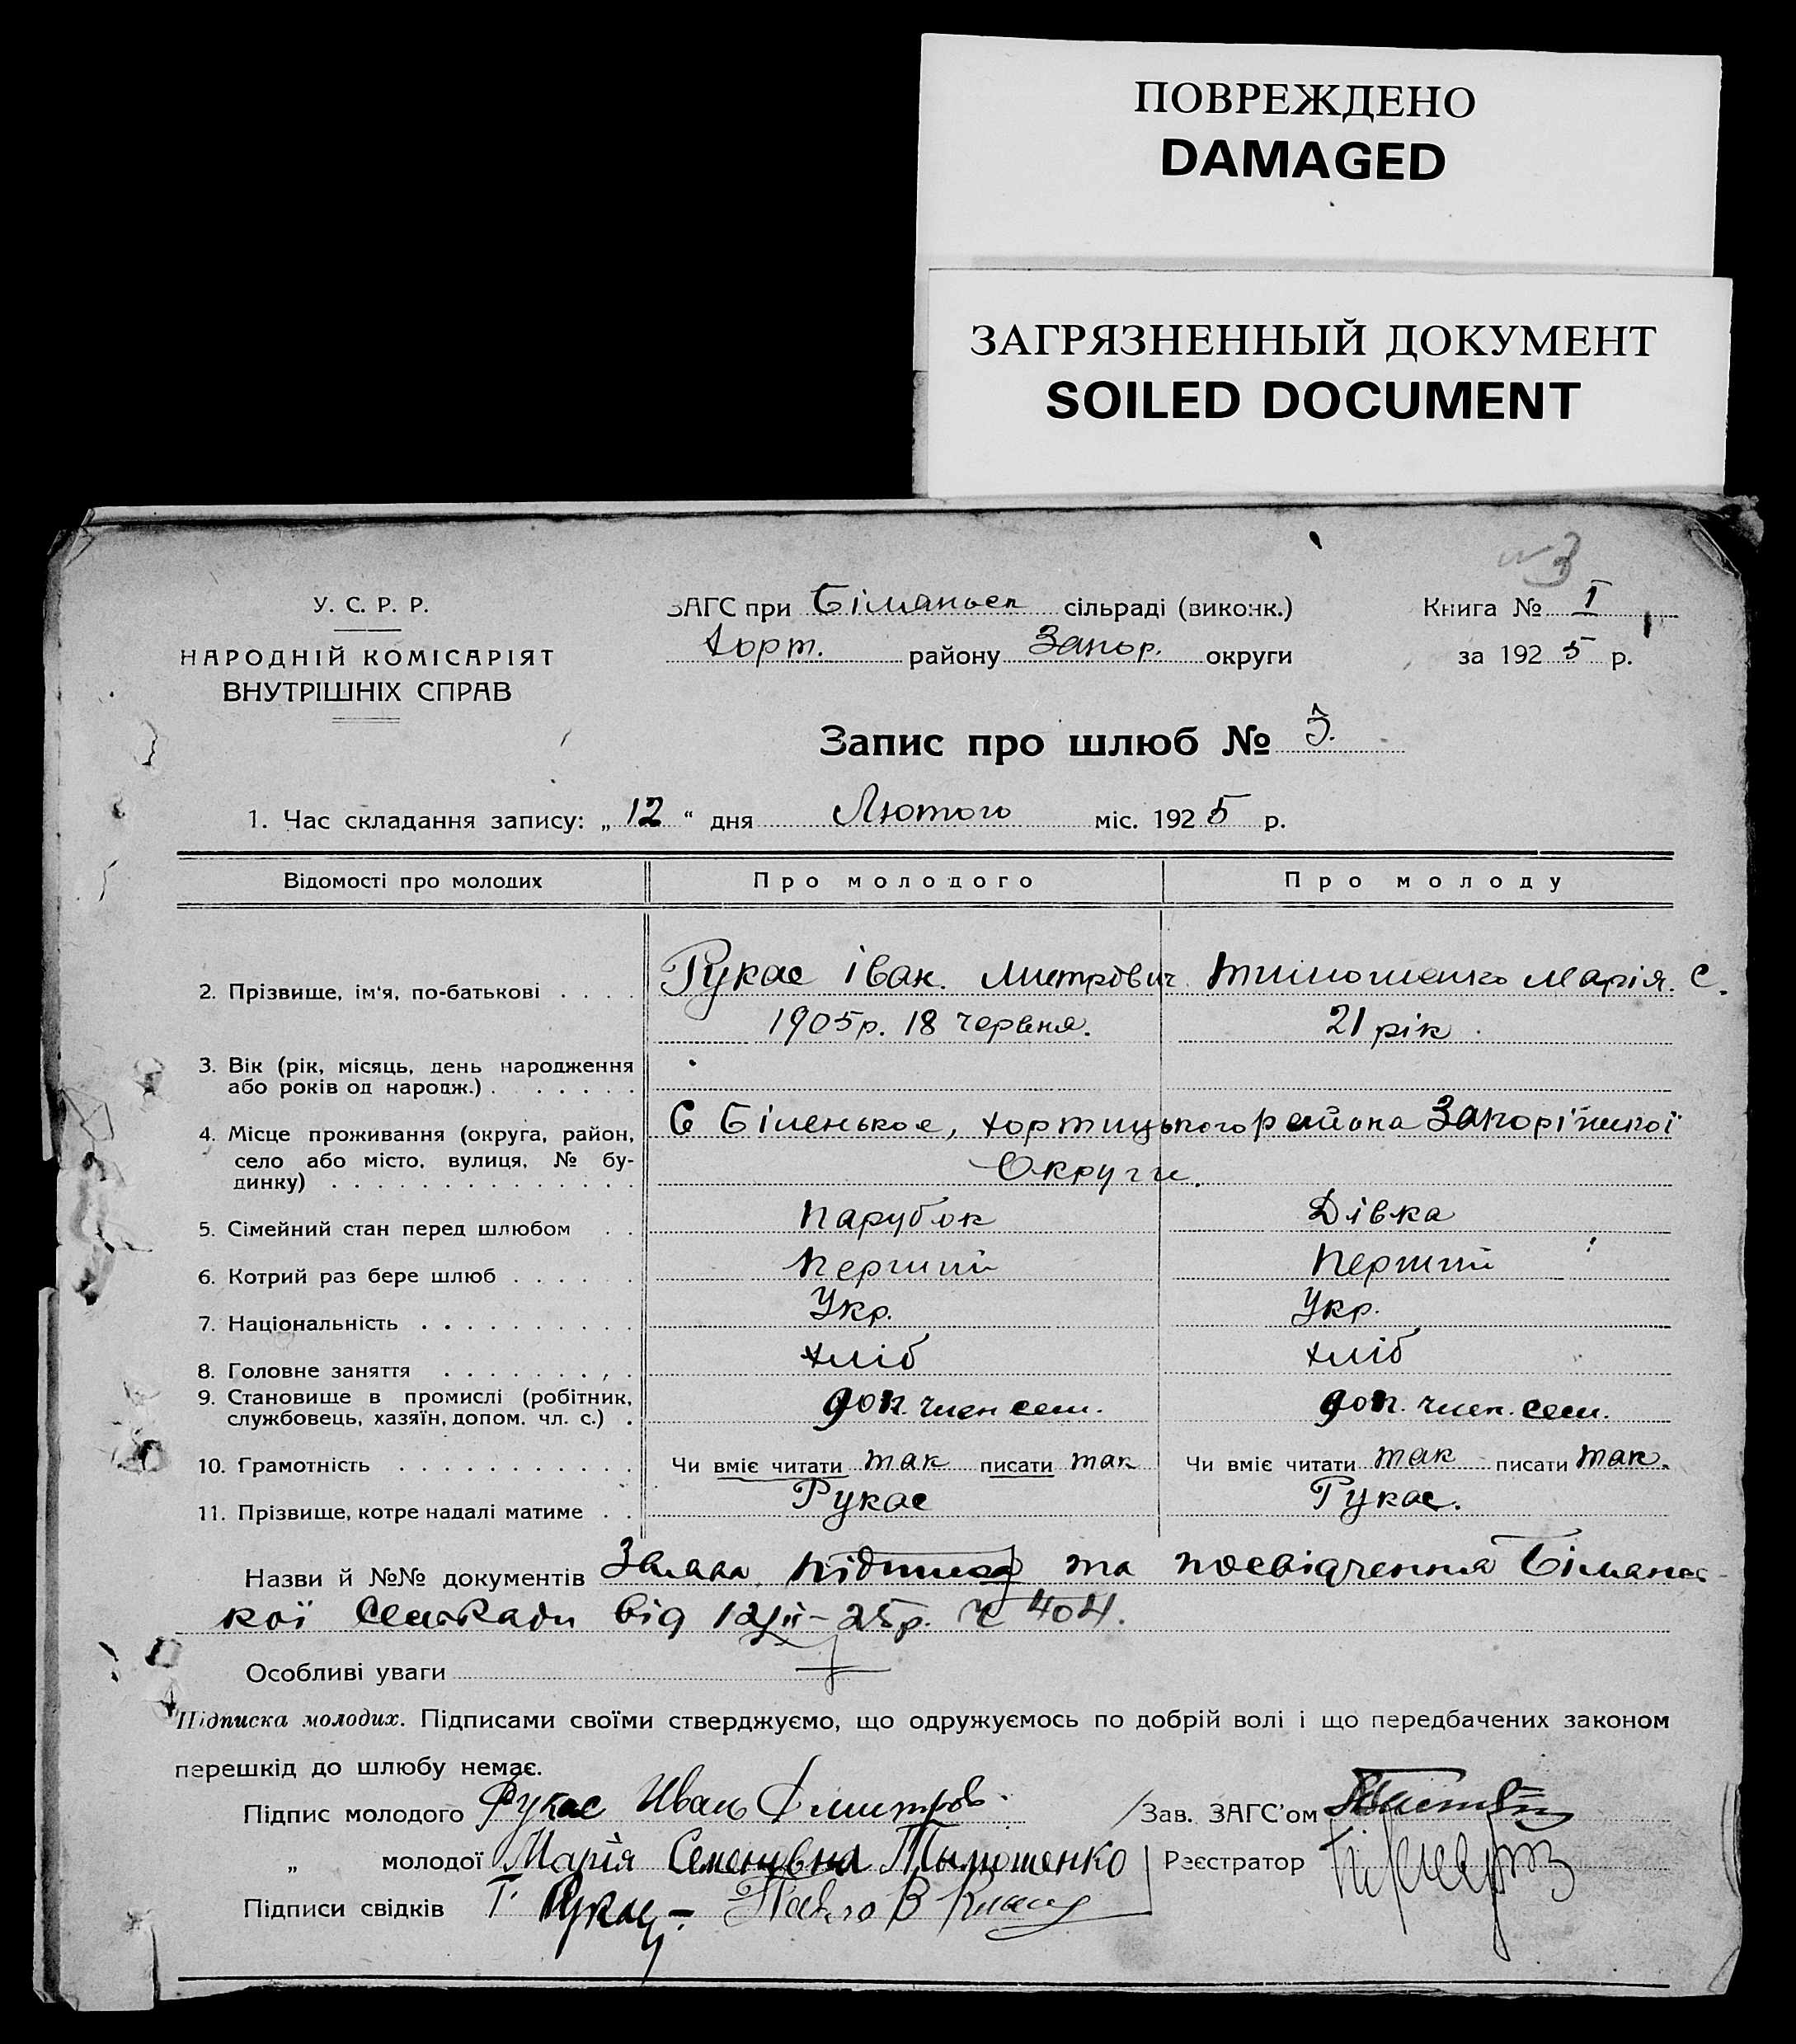 ПОВРЕЖДЕНО
DAMAGED
ЗАГРЯЗНЕННЫЙ ДОКУМЕНТ
SOILED DOCUMENT
У. С. Р. Р.
НАРОДНІЙ КОМІСАРІЯТ
ВНУТРІШНІХ СПРАВ
ЗАГС при сільраді (виконк.)
Хорт. району Запор. округи
Книга № I
за 1925 р.
Запис про шлюб № 3.
1. Час складання запису: „12“ дня Лютого міс. 1925 р.
Відомості про молодих Про молодого Про молоду
2. Прізвище, ім'я, по-батькові . . . . Рукас Іван. Митрович Тимошенко Марія. С.
1905р. 18 червня. 21 рік
3. Вік (рік, місяць, день народження
або років од народж.) . . . . . .
4. Місце проживання (округа, район, С Біленькое, Хортицького района Запоріжкої
село або місто, вулиця, № бу-
динку) . . . . . . . . . . . . . . Округи.
5. Сімейний стан перед шлюбом . . Парубок Дівка
6. Котрий раз бере шлюб . . . . . . Перший Перший
7. Національність . . . . . . . . . . Укр. Укр.
8. Головне заняття . . . . . . . . . Хліб Хліб
9. Становище в промислі (робітник,
службовець, хазяїн, допом. чл. с.) . доп. член сем. доп. член. сем.
10. Грамотність . . . . . . . . . . . Чи вміє читати так писати так Чи вміє читати так писати так.
11. Прізвище, котре надалі матиме . . Рукас Рукас.
Назви й №№ документів Заява, підписка та посвідчення
кої від 25р. 404.
Особливі уваги
Підписка молодих. Підписами своїми стверджуємо, що одружуємось по добрій волі і що передбачених законом
перешкід до шлюбу немає.
Підпис молодого Рукас Иван Дмитров. Зав. ЗАГС'ом
„ молодої Марія Семенувна Тымошенко Реєстратор
Підписи свідків Г Рукас Павло В